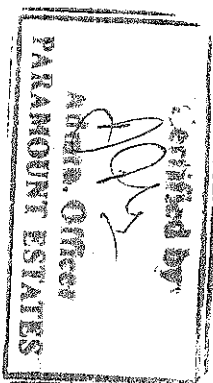 Verified by:
Admin. Officer
PARAMOUNT ESTATES